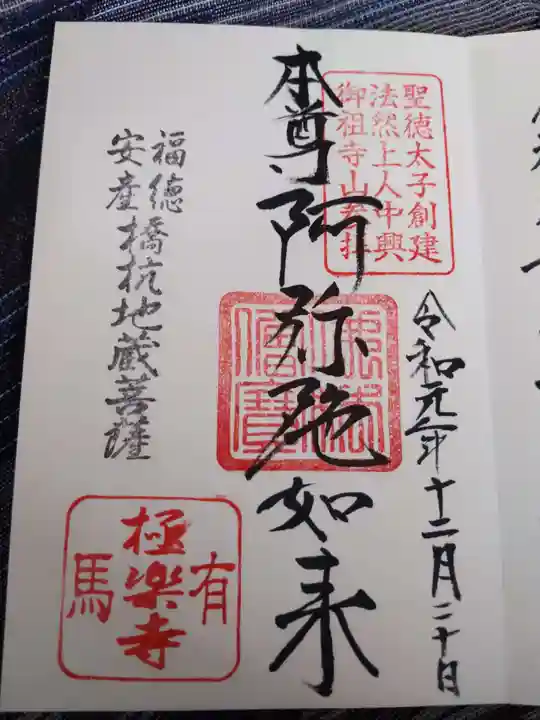 聖徳太子創建
法然上人中興
御祖寺山参拝
令和元年十二月二十日
本尊阿弥陀如来
福徳
安産
橋杭地蔵菩薩
有馬
極楽寺